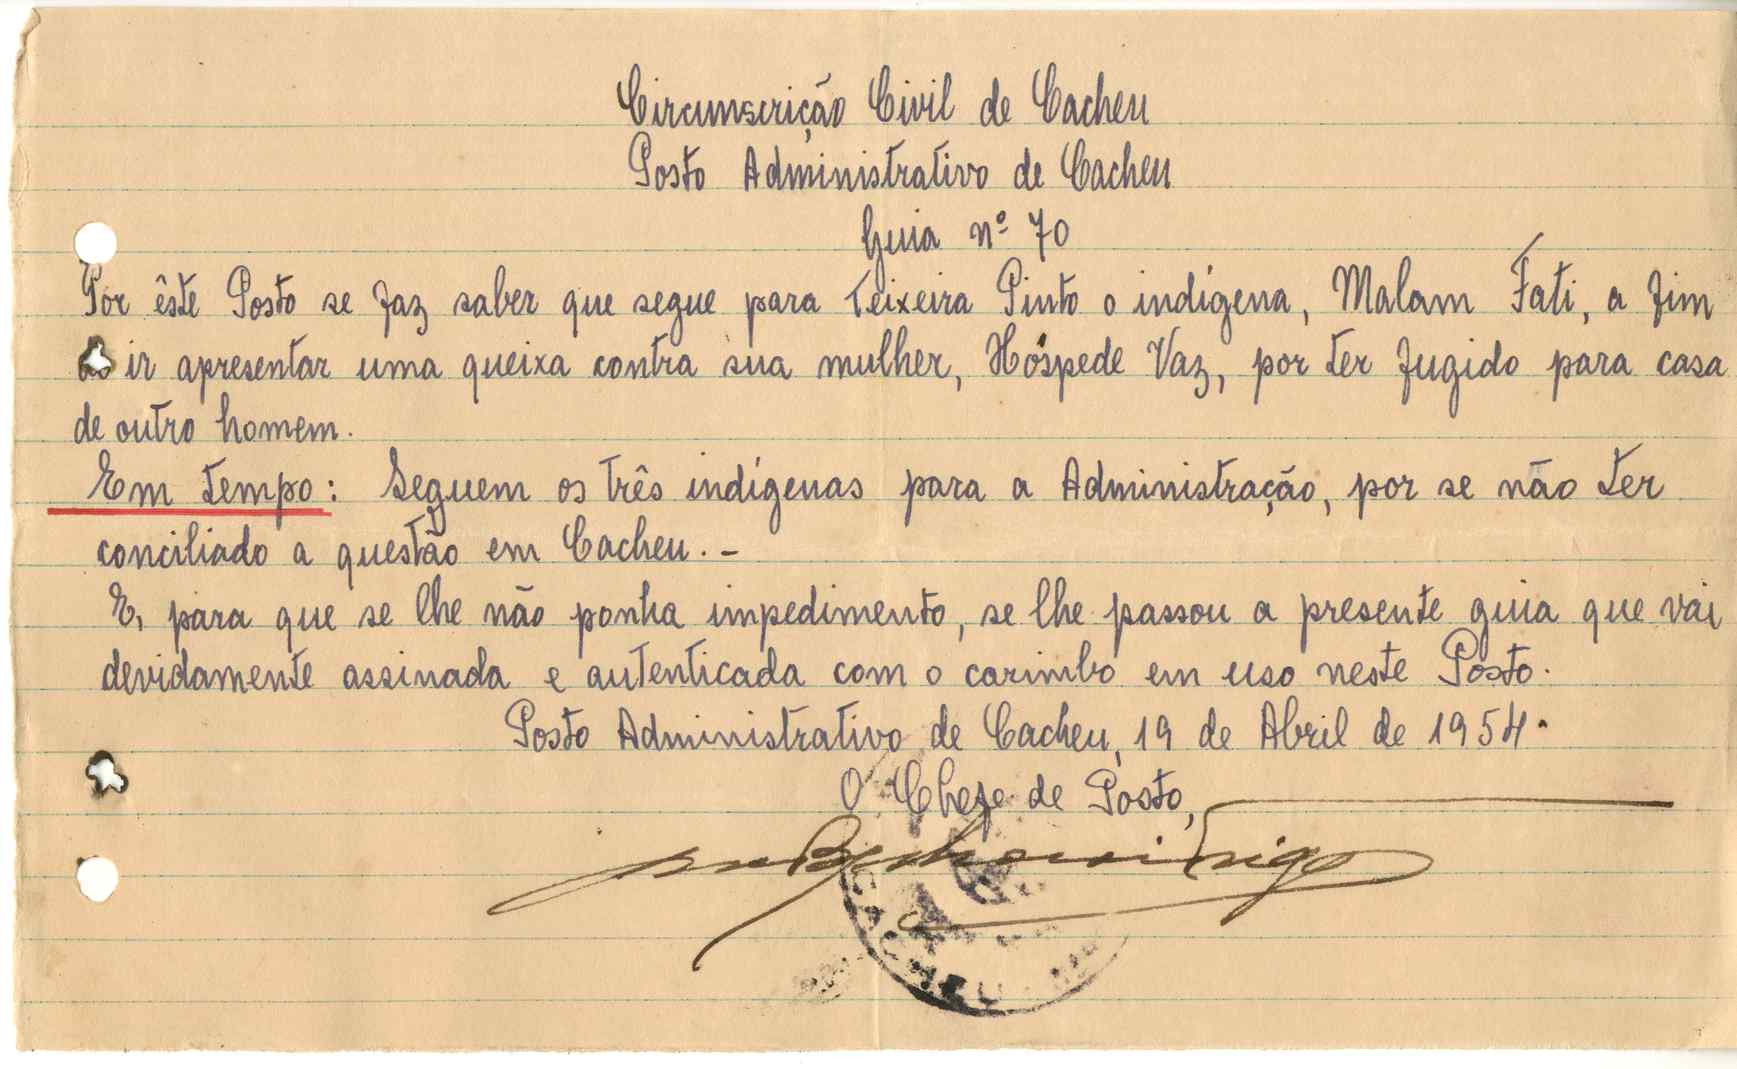 Circunscrição Civil de Cacheu
Posto Administrativo de Cacheu
Guia nº 70
Por êste Posto se faz saber que segue para Teixeira Pinto o indígena, Malam Fati, a fim
ir apresentar uma queixa contra sua mulher, Hóspede Vaz, por ter fugido para casa
de outro homem.
Em tempo: Seguem os três indígenas para a Administração, por se não ter
conciliado a questão em Cacheu. -
E, para que se lhe não ponha impedimento, se lhe passou a presente guia que vai
devidamente assinada e autenticada com o carimbo em uso neste Posto.
Posto Administrativo de Cacheu, 19 de Abril de 1954.
O Chefe de Posto,
CACHEU